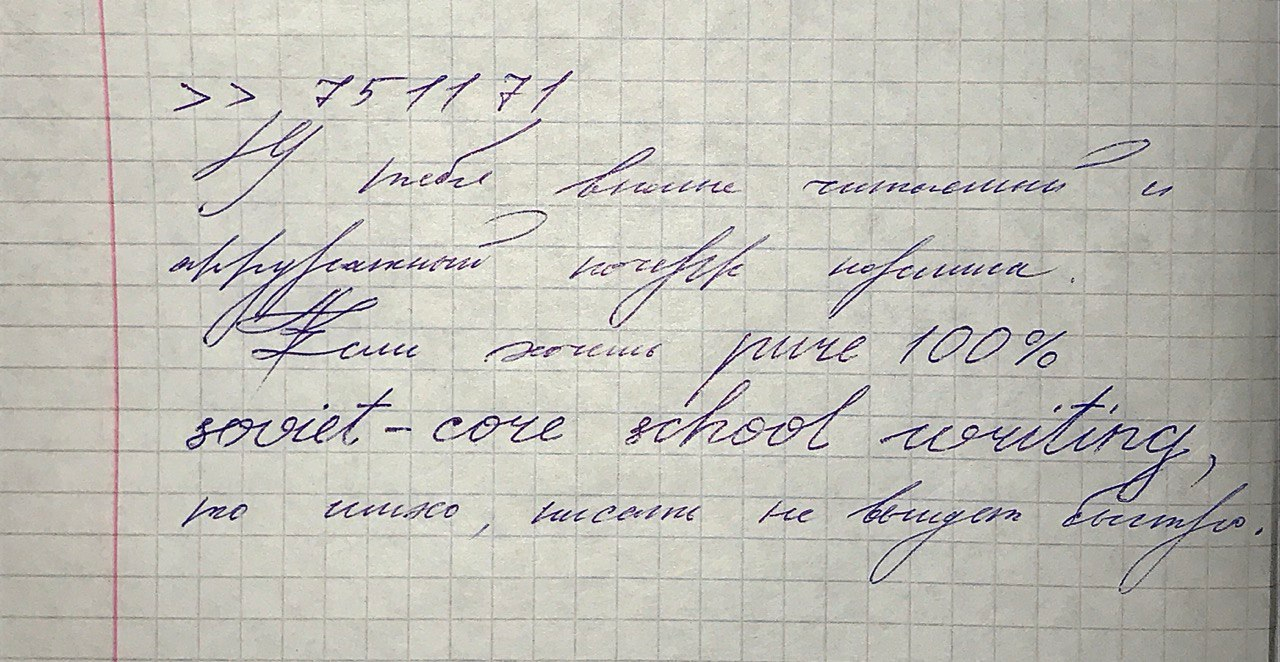 >> 751171
У тебя вполне читаемый и
арружатный почерк нормиса.
Если хочешь pure 100%
soviet-core school writing,
то имхо, писать не выйдет быстро.